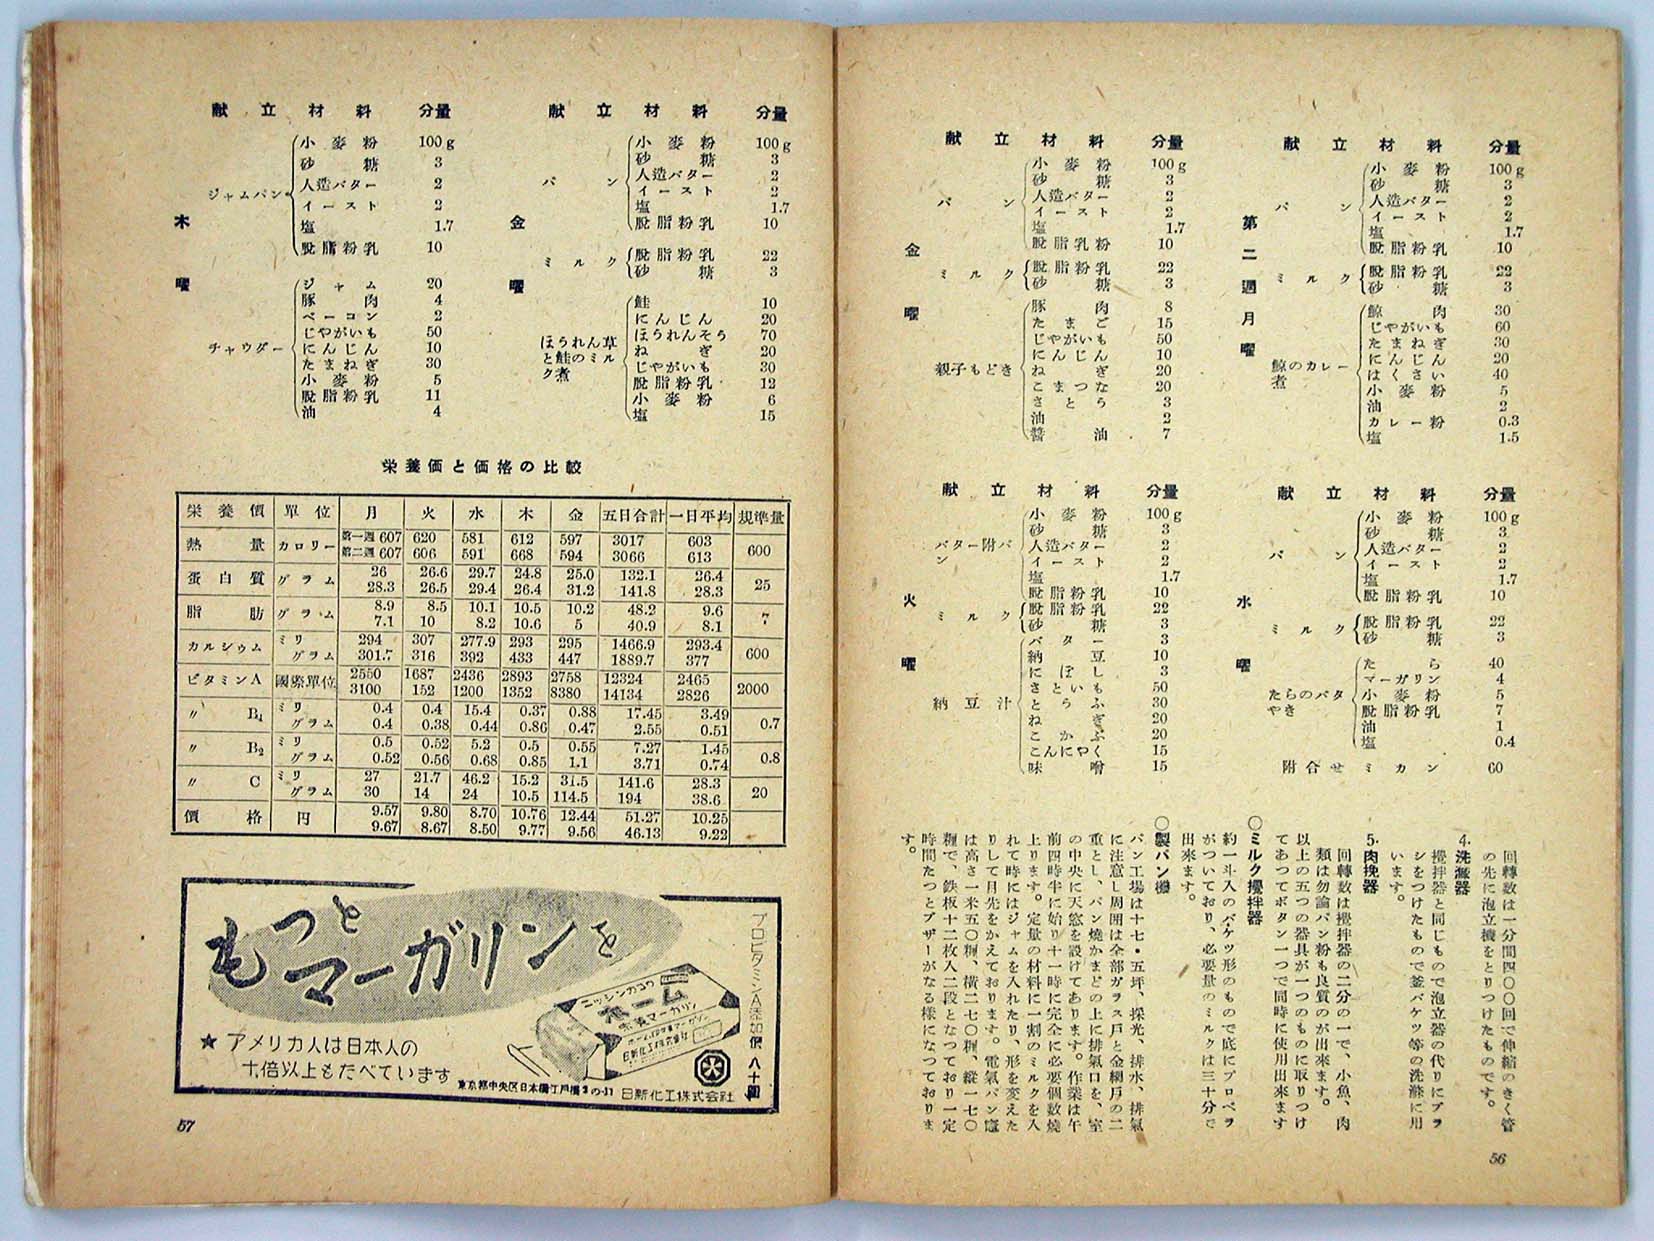 献立 材料 分量
第二週月曜
パン
小麦粉 100g
砂糖 3
人造バター 2
イースト 2
塩 1.7
脱脂粉乳 10
ミルク
脱脂粉乳 22
砂糖 3
鯨のカレー煮
鯨肉 30
じやがいも 60
たまねぎ 30
にんじん 20
はくさい 40
小麦粉 5
油 2
カレー粉 0.3
塩 1.5
献立 材料 分量
火曜
バター附パン
小麦粉 100g
砂糖 3
人造バター 2
イースト 2
塩 1.7
脱脂粉乳 10
ミルク
脱脂粉乳 22
砂糖 3
バター 3
納豆汁
納豆 10
にぼし 3
さといも 50
とうふ 30
ねぎ 20
こかぶ 20
こんにやく 15
味噌 15
献立 材料 分量
水曜
パン
小麦粉 100g
砂糖 3
人造バター 2
イースト 2
塩 1.7
脱脂粉乳 10
ミルク
脱脂粉乳 22
砂糖 3
たらのバタやき
たら 40
マーガリン 4
小麦粉 5
脱脂粉乳 7
油 1
塩 0.4
附合せ ミカン 60
献立 材料 分量
金曜
パン
小麦粉 100g
砂糖 3
人造バター 2
イースト 2
塩 1.7
脱脂乳粉 10
ミルク
脱脂粉乳 22
砂糖 3
親子もどき
豚肉 8
たまご 15
じやがいも 50
にんじん 10
ねぎ 20
こまつな 20
さとう 3
油 2
醤油 7
回轉数は一分間四〇〇回で伸縮のきく管
の先に泡立機をとりつけたものです。
4. 洗滌器
攪拌器と同じもので泡立器の代りにブラ
シをつけたもので釜バケツ等の洗滌に用
います。
5. 肉挽器
回轉数は攪拌器の二分の一で、小魚、肉
類は勿論パン粉も良質のが出来ます。
以上の五つの器具が一つのものに取りつけ
てあつてボタン一つで同時に使用出来ます
〇ミルク攪拌器
約一斗入のバケツ形のもので底にプロペラ
がついており、必要量のミルクは三十分で
出来ます。
〇製パン機
パン工場は十七・五坪、採光、排水、排氣
に注意し周囲は全部ガラス戸と金網戸の二
重とし、パン焼かまどの上に排氣口を、室
の中央に天窓を設けてあります。作業は午
前四時半に始り十一時に完全に必要個数焼
上ります。定量の材料に一割のミルクを入
れて時にはジャムを入れたり、形を変えた
りして目先をかえております。電氣パン竈
は高さ一米五〇糎、横二七〇糎、縦一七〇
糎で、鉄板十二枚入二段となつており一定
時間たつとブザーがなる様になつておりま
す。
56
献立 材料 分量
木曜
ジャムパン
小麥粉 100g
砂糖 3
人造バター 2
イースト 2
塩 1.7
脱脂粉乳 10
ジャム 20
チャウダー
豚肉 4
ベーコン 2
じやがいも 50
にんじん 10
たまねぎ 30
小麥粉 5
脱脂粉乳 11
油 4
献立 材料 分量
金曜
パン
小麥粉 100g
砂糖 3
人造バター 2
イースト 2
塩 1.7
脱脂粉乳 10
ミルク
脱脂粉乳 22
砂糖 3
ほうれん草と鮭のミルク煮
鮭 10
にんじん 20
ほうれんそう 70
ねぎ 20
じやがいも 30
脱脂粉乳 12
小麥粉 6
塩 15
栄養価と価格の比較
栄養價 單位 月 火 水 木 金 五日合計 一日平均 規準量
熱量 カロリー 第一週 607 620 581 612 597 3017 603 600
第二週 607 606 591 668 594 3066 613
蛋白質 グラム 26 26.6 29.7 24.8 25.0 132.1 26.4 25
28.3 26.5 29.4 26.4 31.2 141.8 28.3
脂肪 グラム 8.9 8.5 10.1 10.5 10.2 48.2 9.6 7
7.1 10 8.2 10.6 5 40.9 8.1
カルシゥム ミリグラム 294 307 277.9 293 295 1466.9 293.4 600
301.7 316 392 433 447 1889.7 377
ビタミンA 國際單位 2550 1687 2436 2893 2758 12324 2465 2000
3100 152 1200 1352 8380 14134 2826
〃 B1 ミリグラム 0.4 0.4 15.4 0.37 0.88 17.45 3.49 0.7
0.4 0.38 0.44 0.86 0.47 2.55 0.51
〃 B2 ミリグラム 0.5 0.52 5.2 0.5 0.55 7.27 1.45 0.8
0.52 0.56 0.68 0.85 1.1 3.71 0.74
〃 C ミリグラム 27 21.7 46.2 15.2 31.5 141.6 28.3 20
30 14 24 10.5 114.5 194 38.6
價格 円 9.57 9.80 8.70 10.76 12.44 51.27 10.25
9.67 8.67 8.50 9.77 9.56 46.13 9.22
もっとマーガリンを
プロビタミンA添加 價八十圓
ニッシンカコウ
ホーム
マーガリン
日新化工株式会社
★アメリカ人は日本人の
十倍以上もたべています
東京都中央区日本橋江戸橋3の11 日新化工株式会社
57